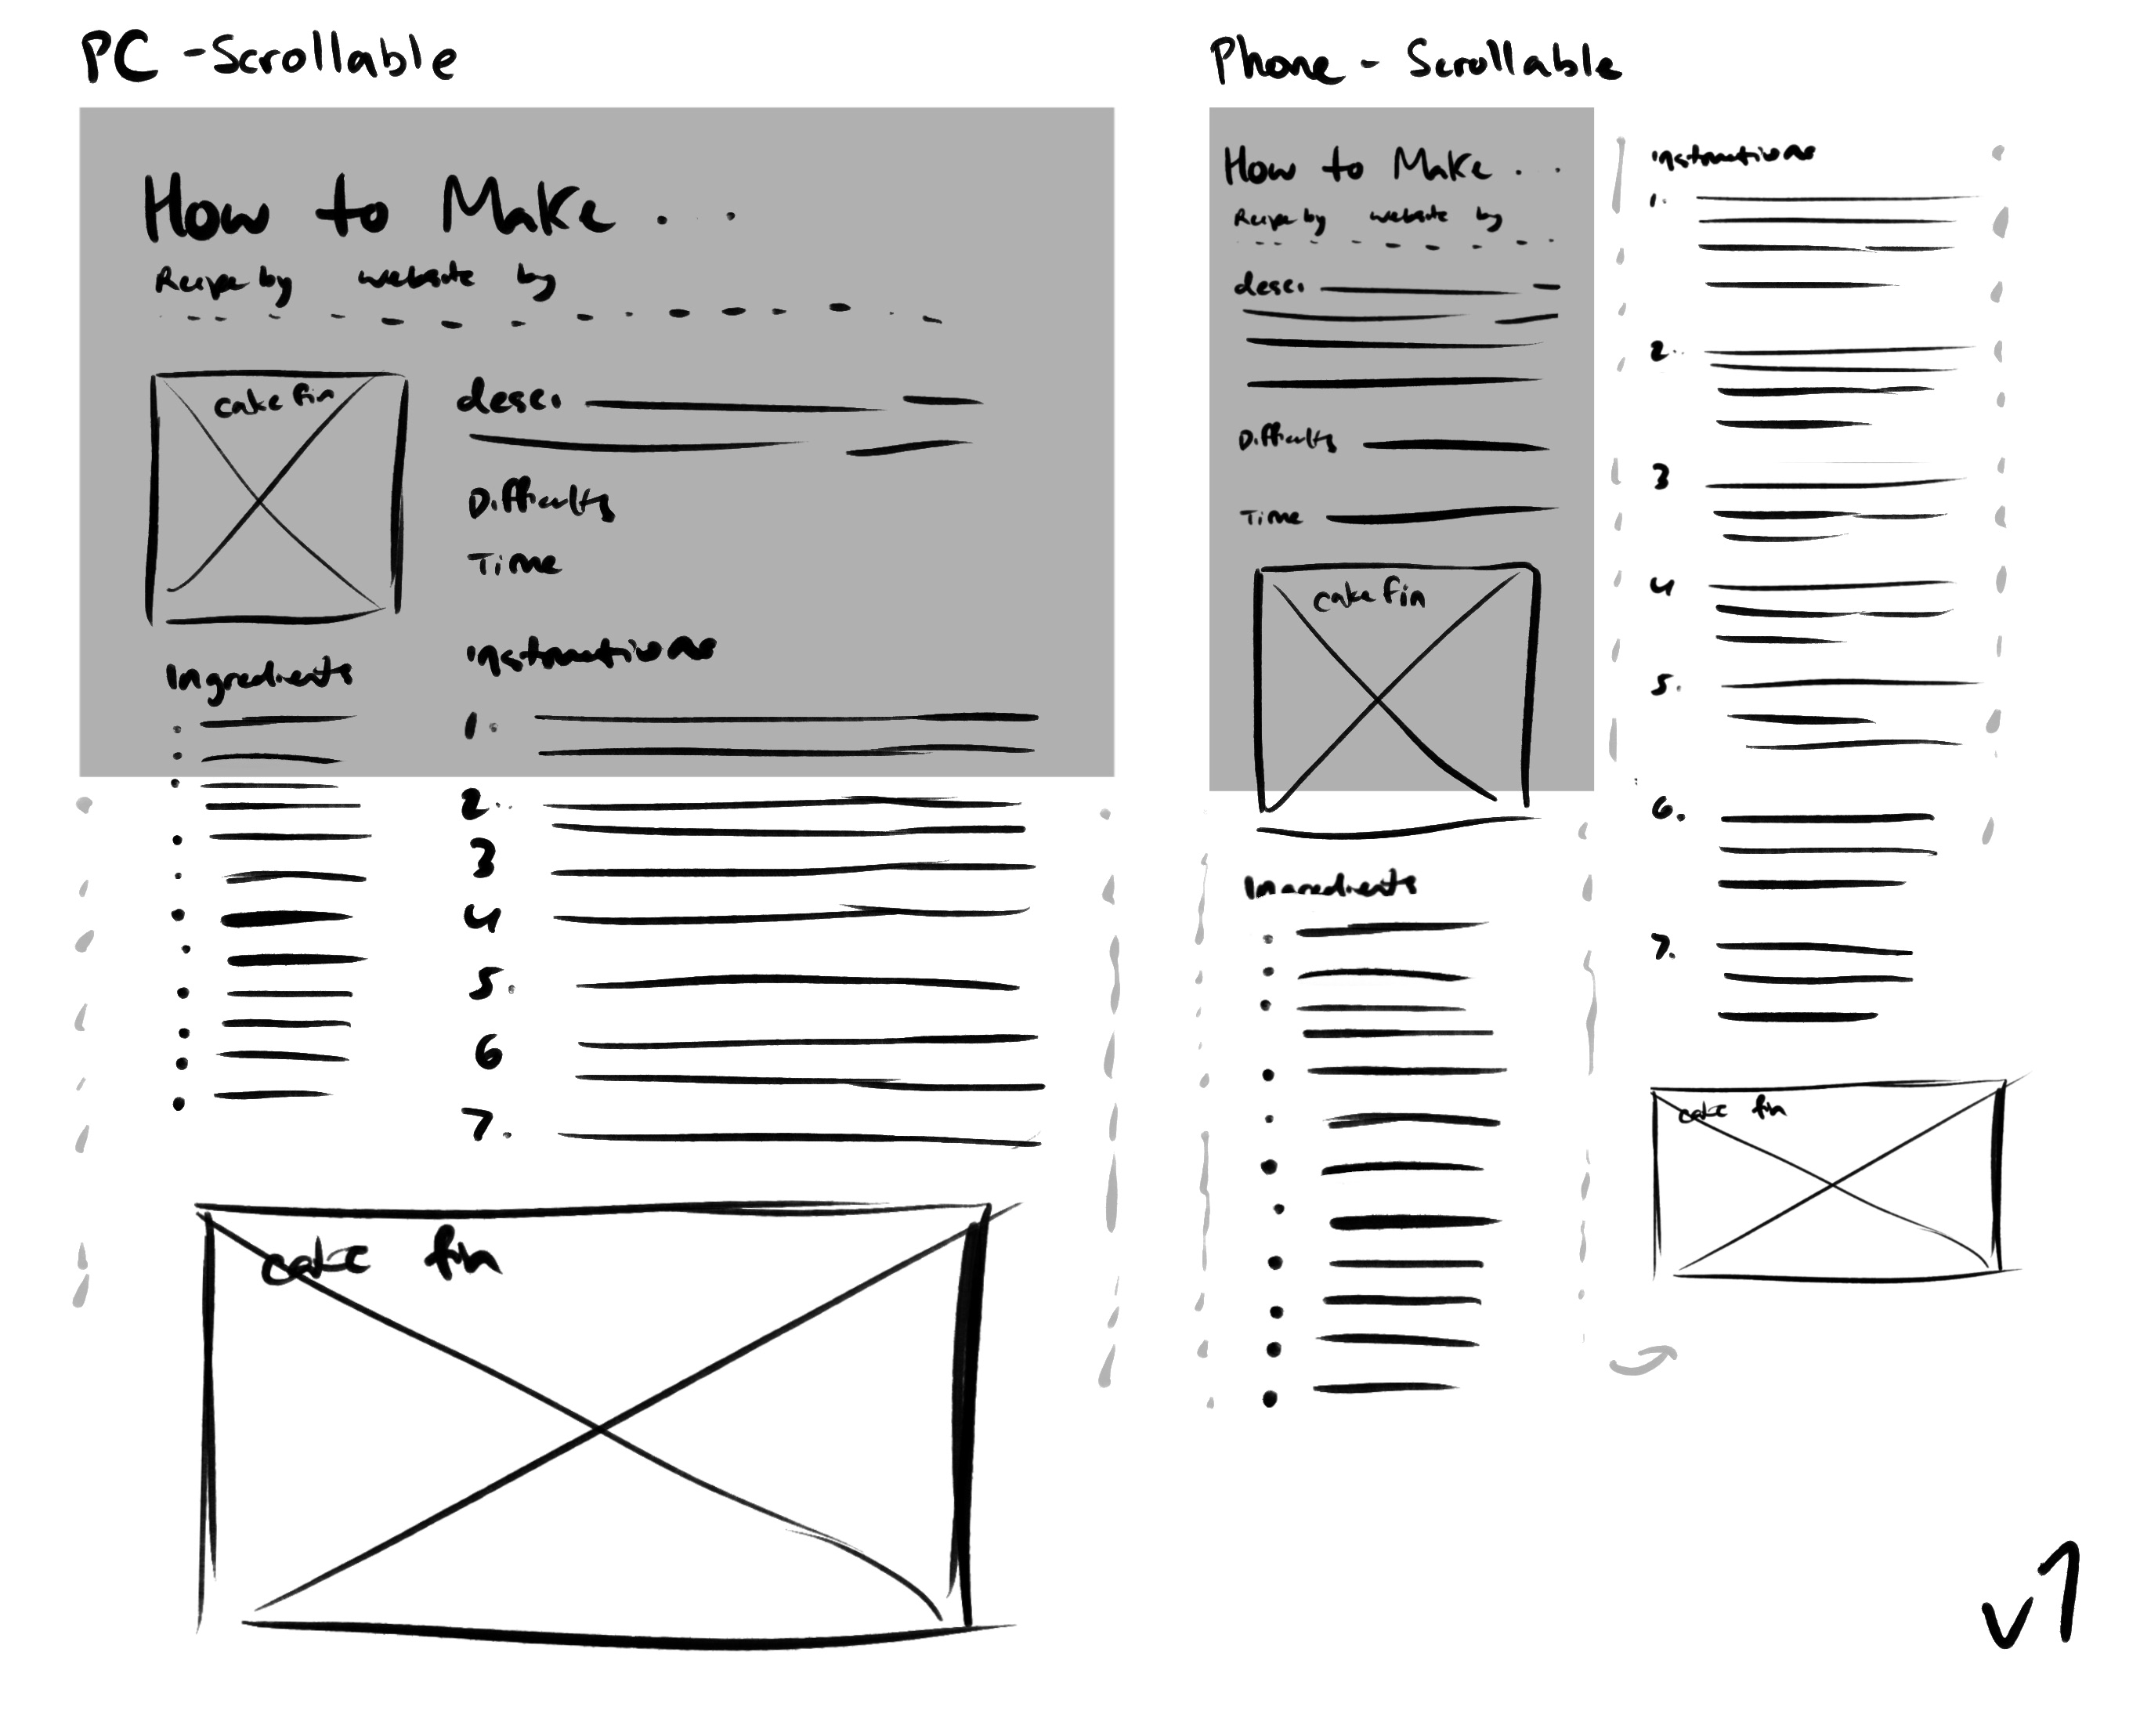 PC - Scrollable
How to Make . . .
Recipe by website by
cake fin
desc.
Difficulty
Time
Ingredients
Instructions
1.
2.
3
4
5.
6
7.
cake fin
Phone - Scrollable
How to Make . .
Recipe by website by
desc.
Difficulty
Time
cake fin
Ingredients
Instructions
1.
2.
3
4
5.
6.
7.
cake fin
v1